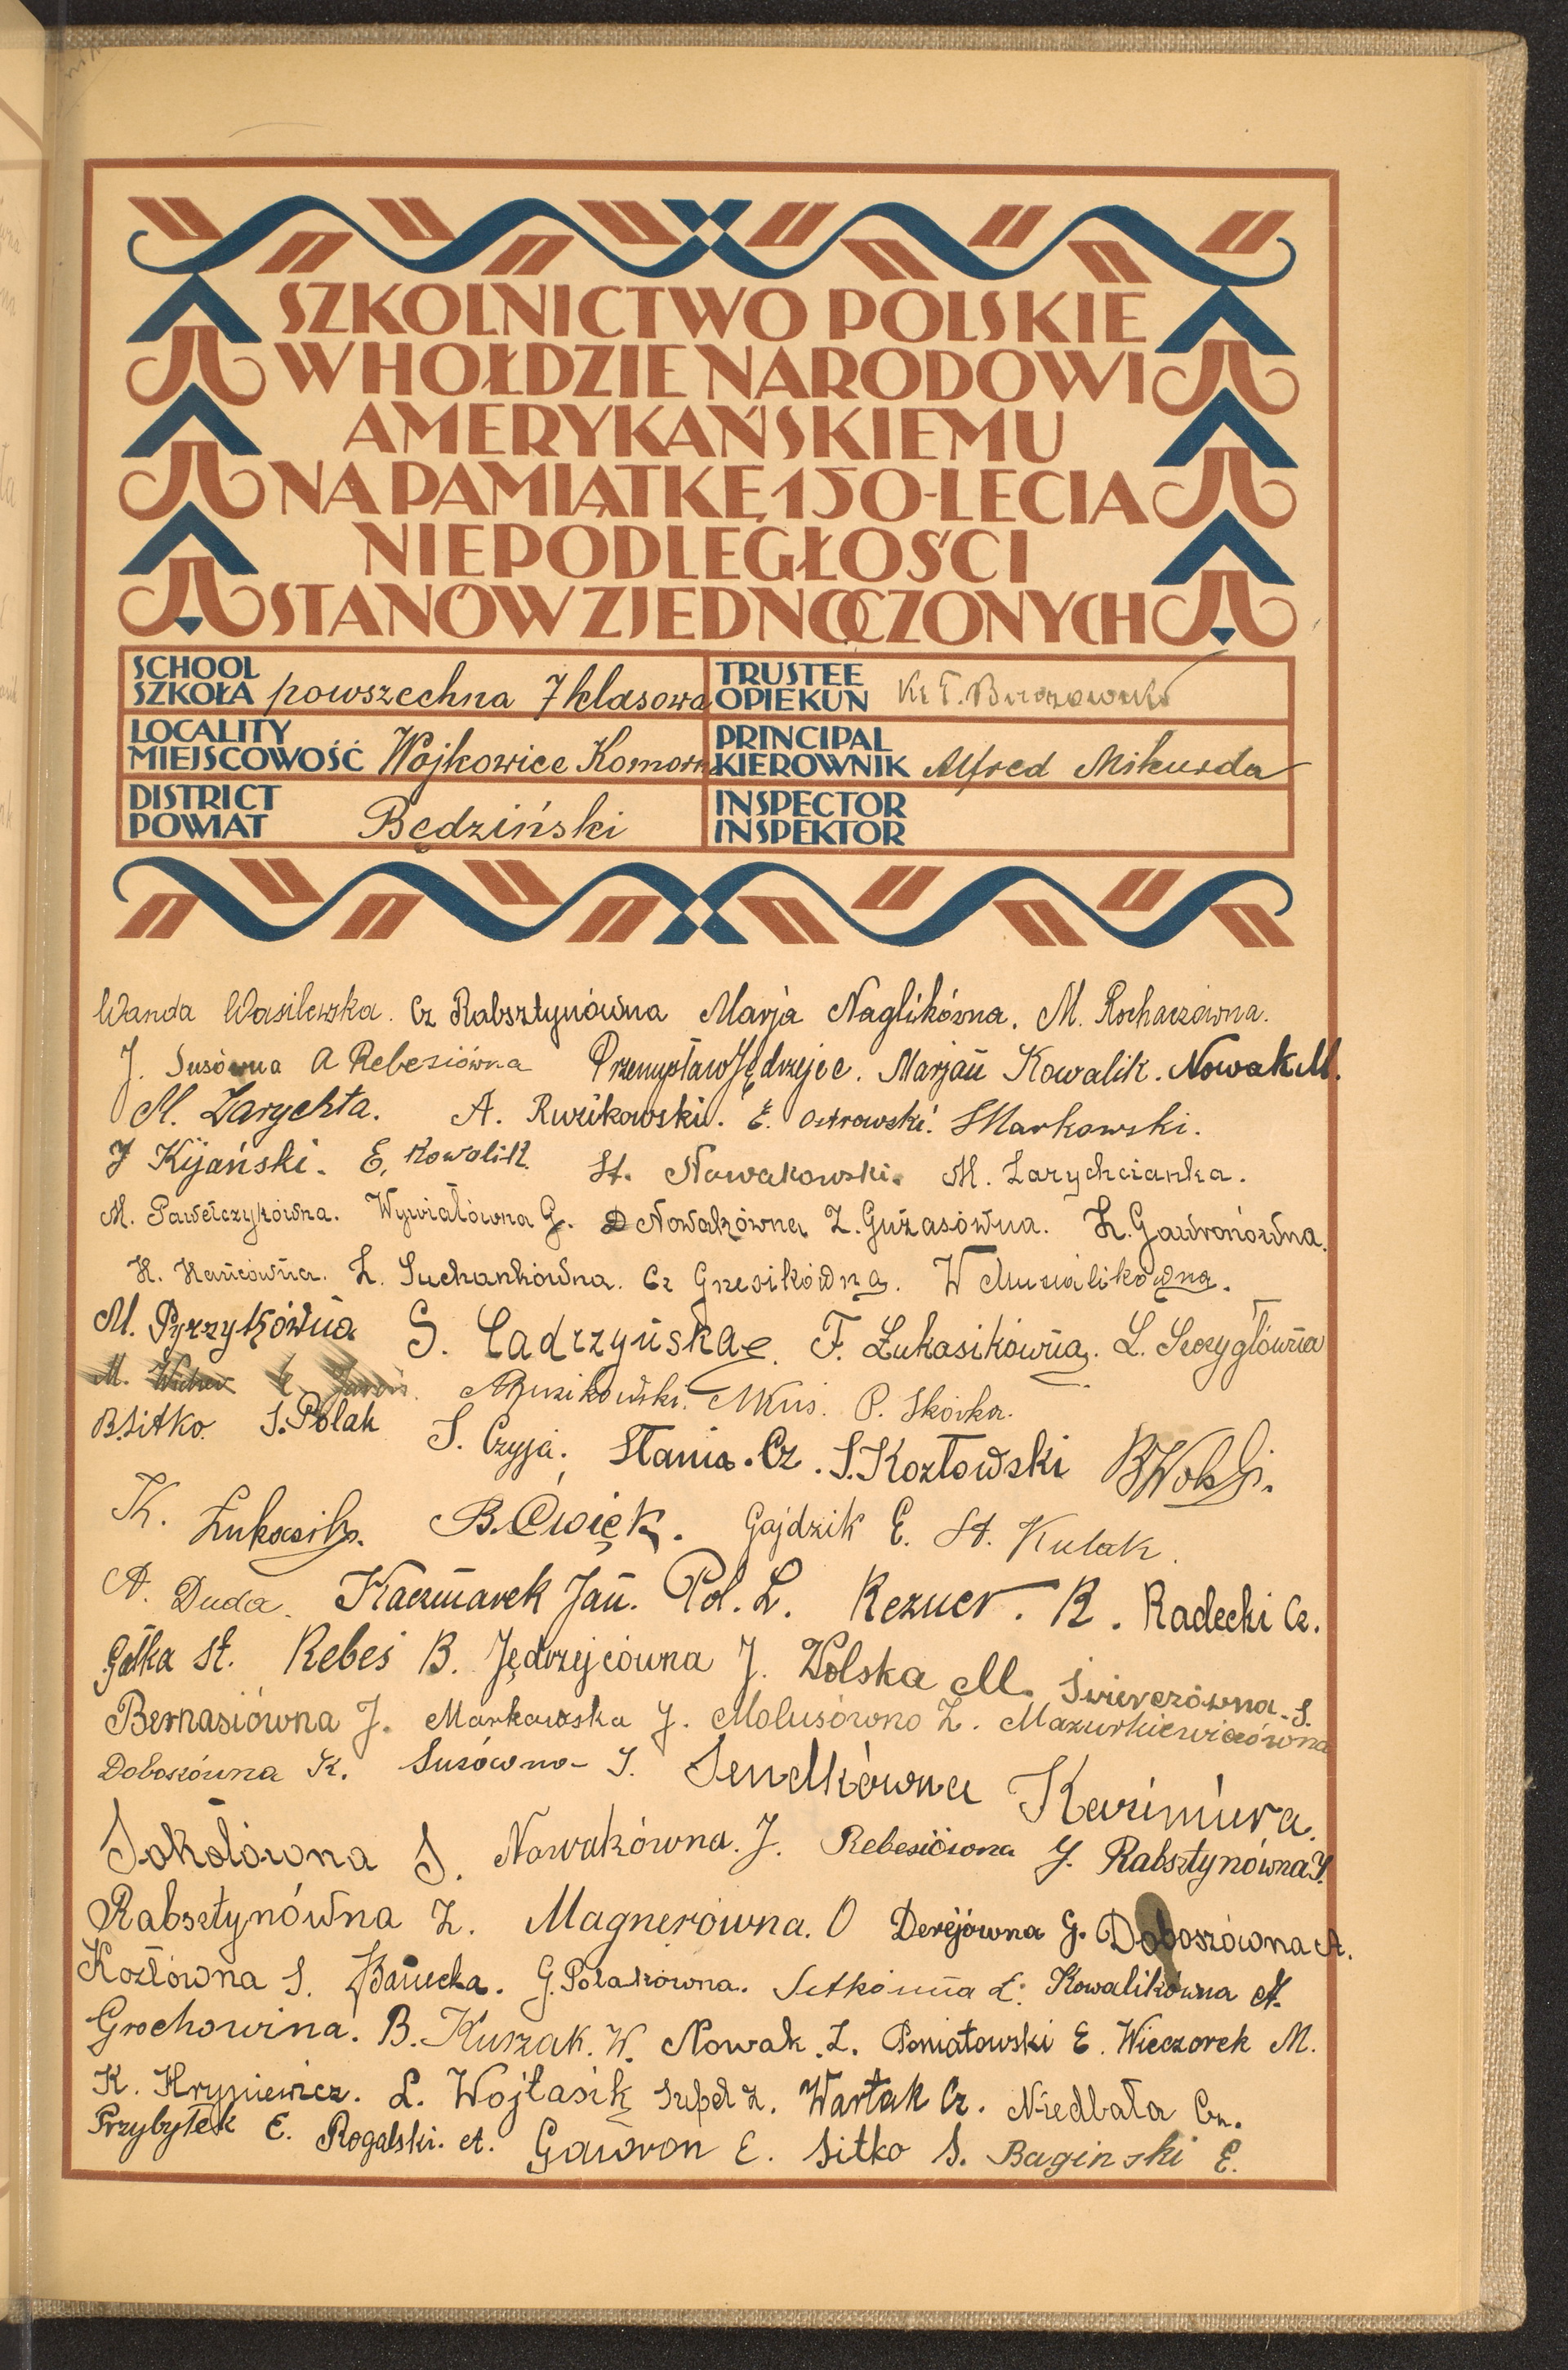 SZKOLNICTWO POLSKIE
W HOŁDZIE NARODOWI
AMERYKAŃSKIEMU
NA PAMIĄTKĘ 150-LECIA
NIEPODLEGŁOŚCI
STANÓW ZJEDNOCZONYCH
SCHOOL
SZKOŁA powszechna 7 klasowa
TRUSTEE
OPIEKUN
LOCALITY
MIEJSCOWOŚĆ Wojkowice Komorn
PRINCIPAL
KIEROWNIK Alfred Mikurda
DISTRICT
POWIAT Będziński
INSPECTOR
INSPEKTOR
Wanda Wasilewska. Cz Rabsztynówna Marja Naglikówna. M.
J. Susówna A Rebesiówna Przemysław Jędrzejec. Marjan Kowalik. Nowak M.
M. Zarychta. A. Ruzikowski. E. Ostrowski. S Markowski.
J Kijański. E. Kowalik. St. Nowakowski. M. Zarychcianka.
M. Pawełczykówna. Wywiałówna G. D Nowakówna Z. Guzasówna. H. Gawronówna.
H. Z. Suchankówna. Cz Grzesikówna. W Musialikówna.
M. Pyrzykówna S. Cadrzyńska. F. Łukasikówna. L.
A Ruzikowski. M Kuś. P. Skórka.
B. Sitko. S. Polak S. Czyja. Stania. Cz. S. Kozłowski B Wolski.
K. Łukasik. B. Ćwięk. Gajdzik E. St. Kulak.
A. Duda. Kaczmarek Jan. Pol. L. Rezner. R. Radecki Cz.
Gałka St. Rebeś B. Jędrzejcówna J. Wolska M. Świerczówna. S.
Bernasiówna J. Markowska J. Molusówna Z. Mazurkiewiczówna
Doboszówna K. Susówna S. Sendkówna Kazimiera.
Sokołówna S. Nowakówna. J. Rebesiówna J. Rabsztynówna J.
Rabsztynówna Z. Magnerówna. O Derejówna G. Doboszówna A.
Kozłówna S. Banecka. G. Polakówna. Sitkówna Z. Kowalikówna A.
Grochowina. B. Kurzak. W. Nowak. Z. Poniatowski E. Wieczorek M.
K. Hryniewicz. L. Wojtasik Z. Wartak Cz. Niedbała Cz.
Przybyłek E. Rogalski. A. Gawron E. Sitko S. Baginski E.